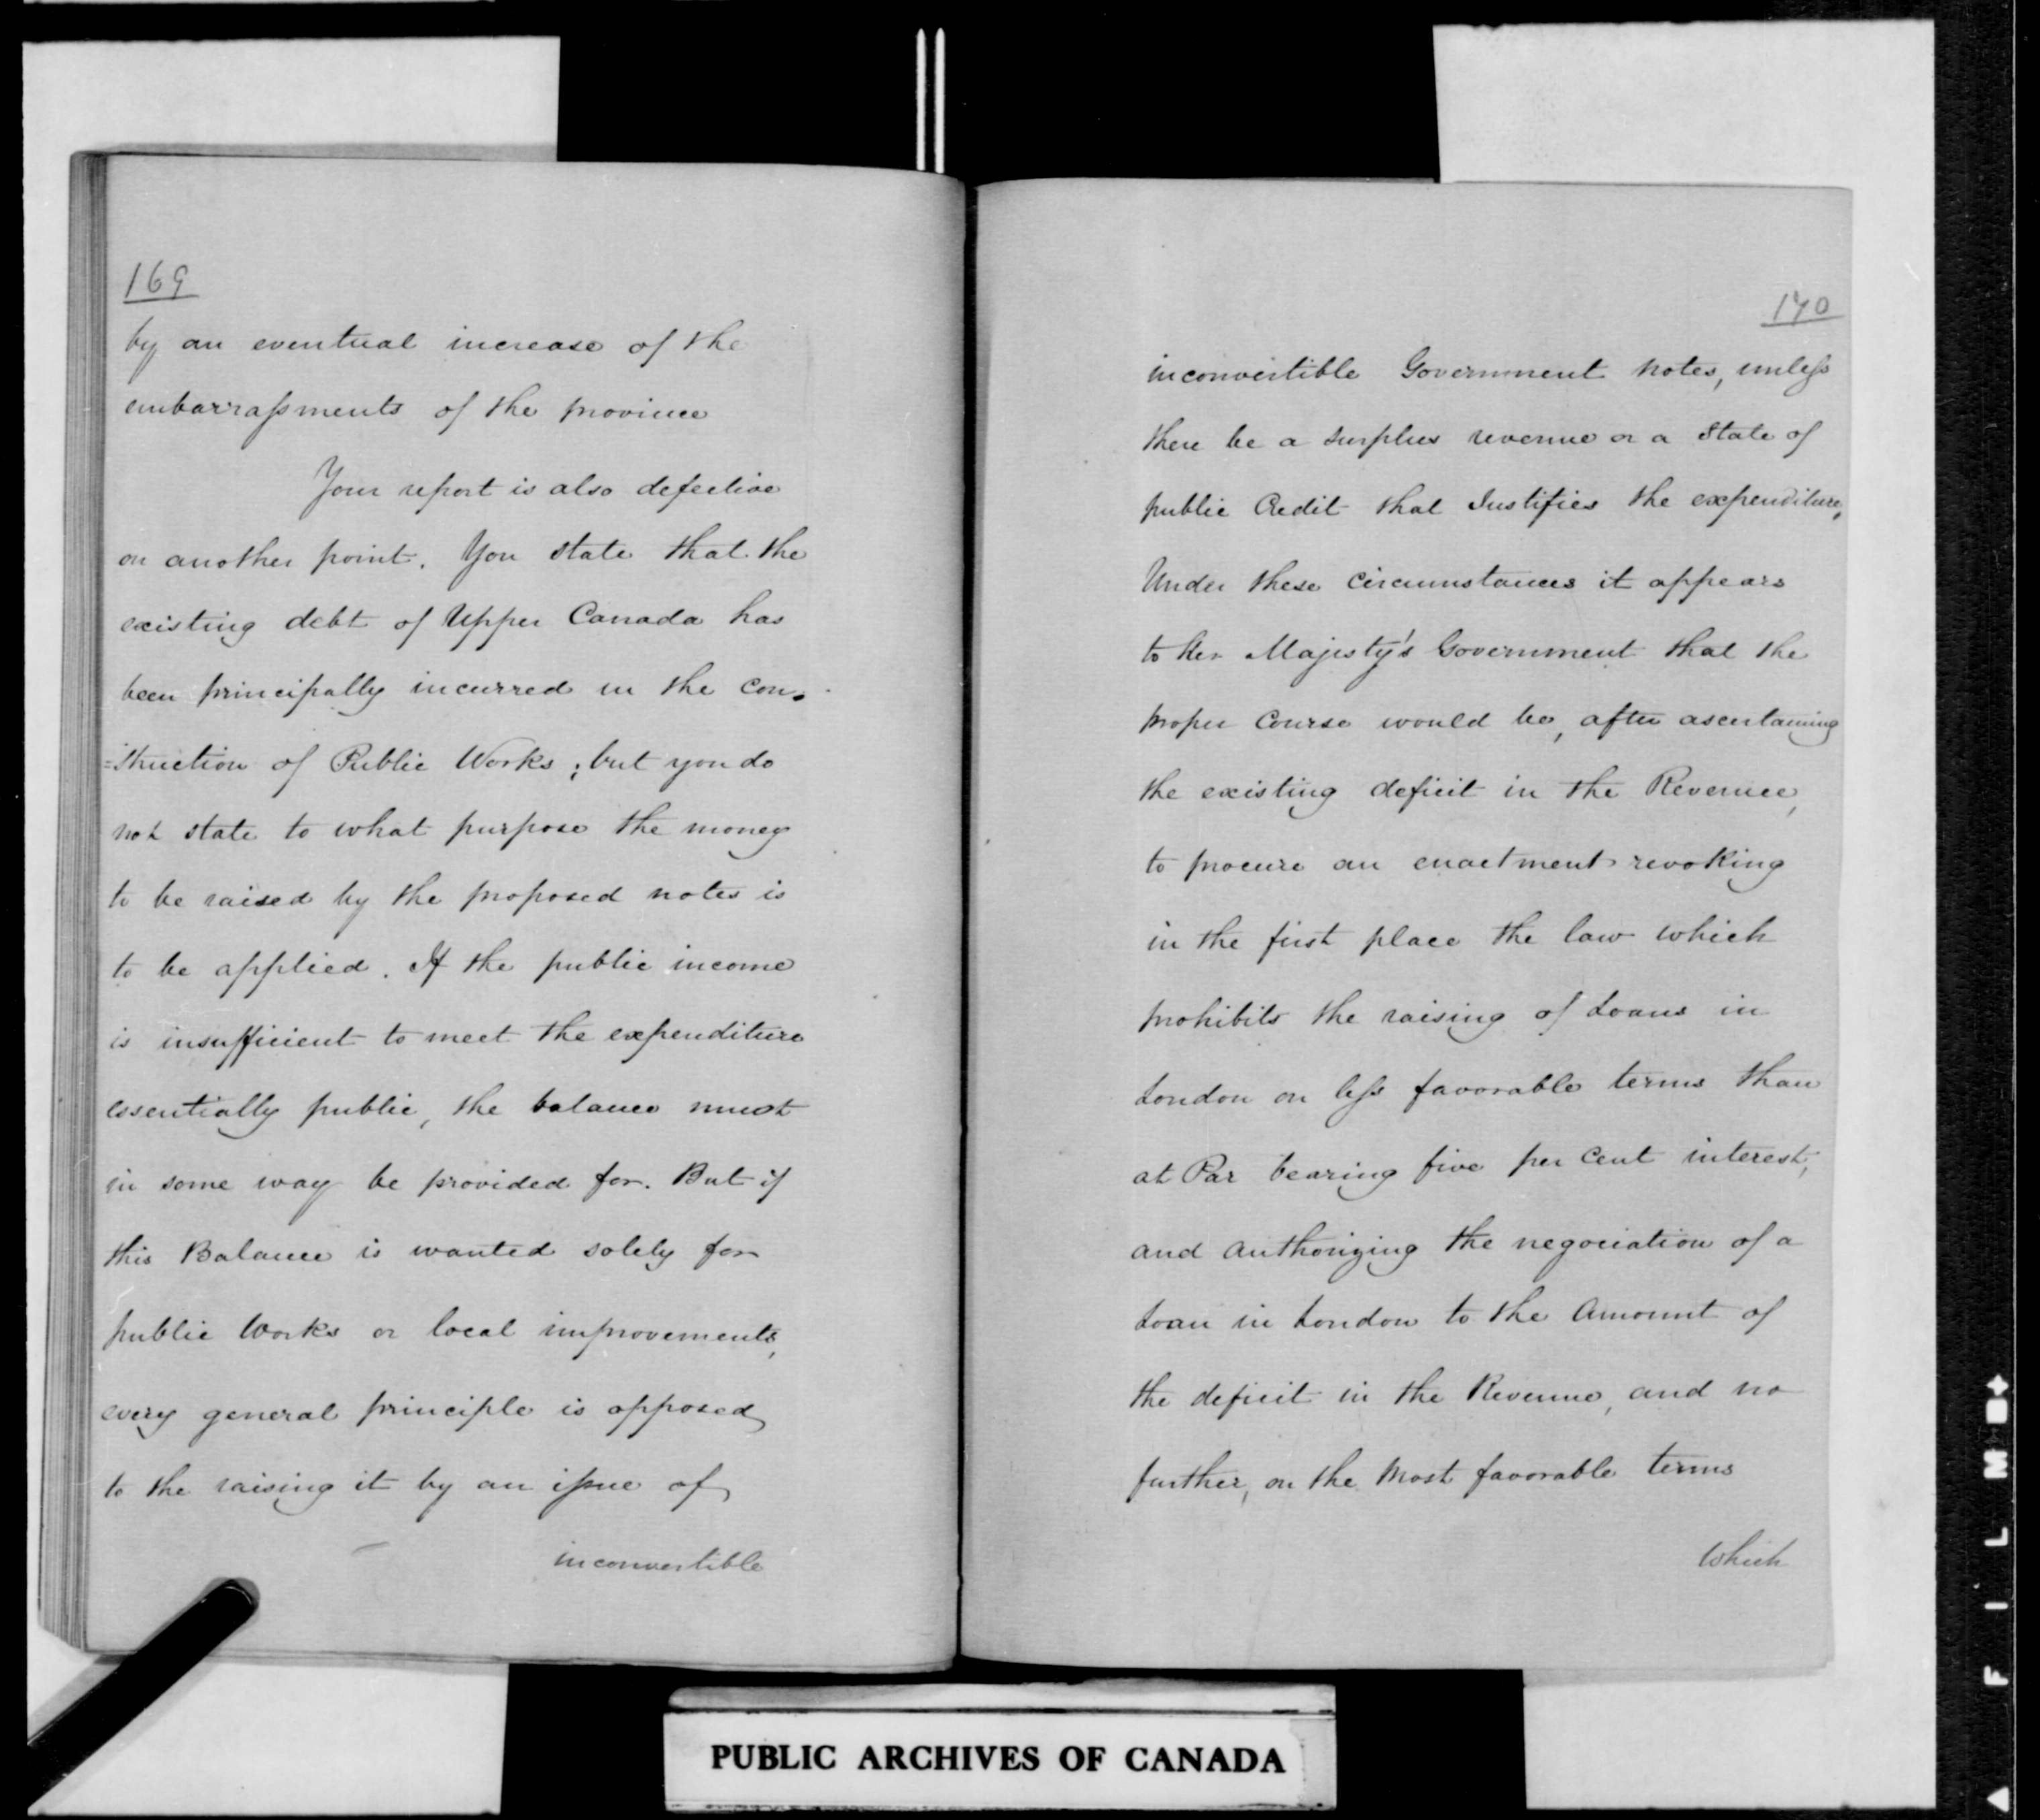 169
by an eventual increase of the
embarrassments of the province
Your report is also defective
on another point. You state that the
existing debt of Upper Canada has
been principally incurred in the con-
=struction of Public Works; but you do
not state to what purpose the money
to be raised by the proposed notes is
to be applied. If the public income
is insufficient to meet the expenditure
essentially public, the balance must
in some way be provided for. But if
this Balance is wanted solely for
public Works or local improvements,
every general principle is opposed
to the raising it by an issue of
inconvertible
170
inconvertible Government notes, unless
there be a surplus revenue or a State of
public Credit that Justifies the expenditure,
Under these Circumstances it appears
to Her Majesty's Government that the
proper Course would be, after ascertaining
the existing deficit in the Revenue,
to procure an enactment revoking
in the first place the law which
prohibits the raising of Loans in
London on less favorable terms than
at Par bearing five per Cent interest,
and Authorizing the negociation of a
Loan in London to the Amount of
the deficit in the Revenue, and no
further, on the Most favorable terms
which
PUBLIC ARCHIVES OF CANADA
FILMED